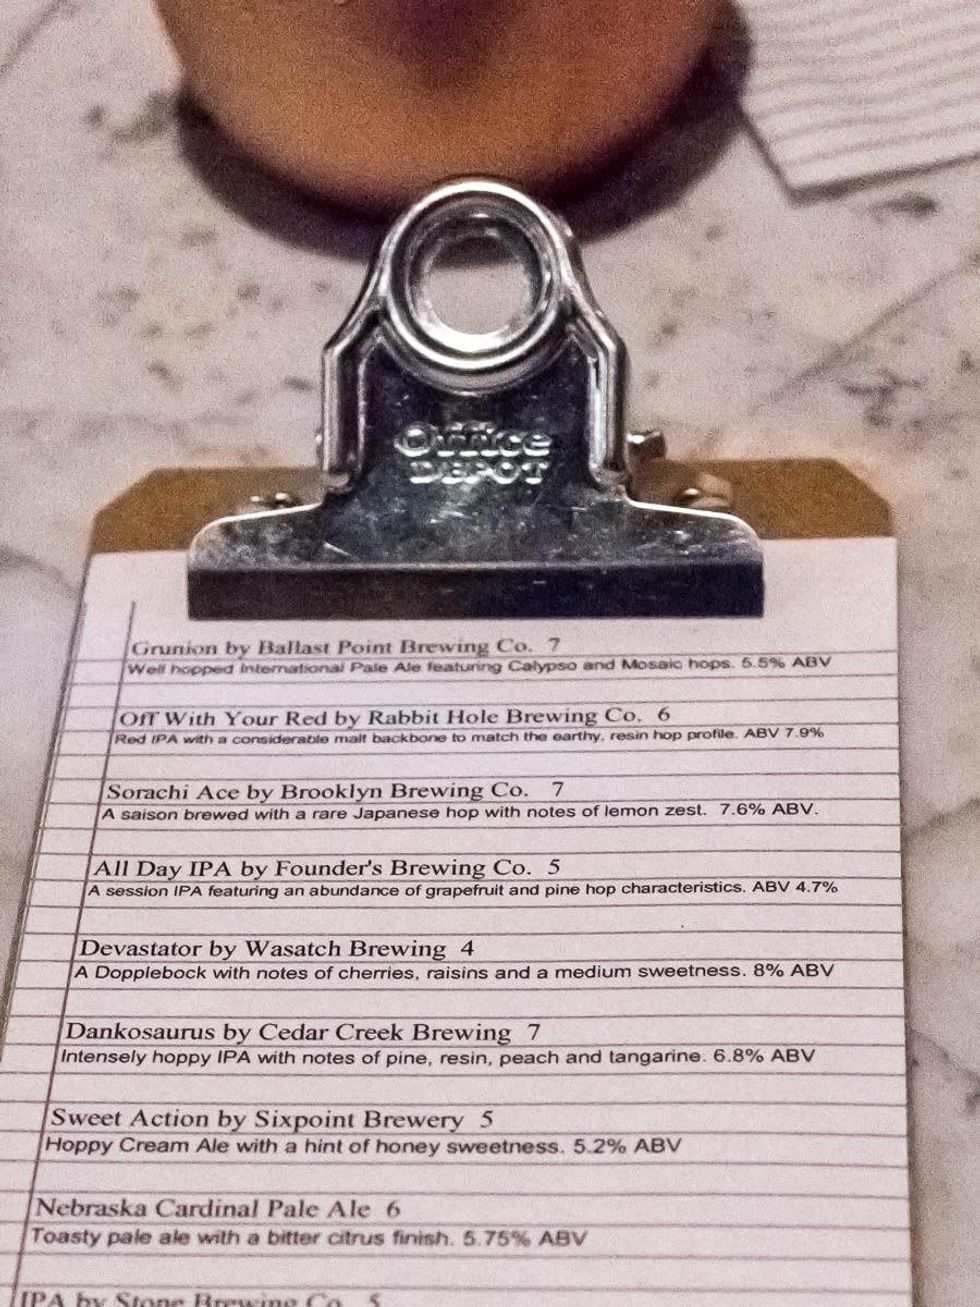 Office
DEPOT
Grunion by Ballast Point Brewing Co. 7
Well hopped International Pale Ale featuring Calypso and Mosaic hops. 5.5% ABV
Off With Your Red by Rabbit Hole Brewing Co. 6
Red IPA with a considerable malt backbone to match the earthy, resin hop profile. ABV 7.9%
Sorachi Ace by Brooklyn Brewing Co. 7
A saison brewed with a rare Japanese hop with notes of lemon zest. 7.6% ABV.
All Day IPA by Founder's Brewing Co. 5
A session IPA featuring an abundance of grapefruit and pine hop characteristics. ABV 4.7%
Devastator by Wasatch Brewing 4
A Dopplebock with notes of cherries, raisins and a medium sweetness. 8% ABV
Dankosaurus by Cedar Creek Brewing 7
Intensely hoppy IPA with notes of pine, resin, peach and tangarine. 6.8% ABV
Sweet Action by Sixpoint Brewery 5
Hoppy Cream Ale with a hint of honey sweetness. 5.2% ABV
Nebraska Cardinal Pale Ale 6
Toasty pale ale with a bitter citrus finish. 5.75% ABV
IPA by Stone Brewing Co. 5